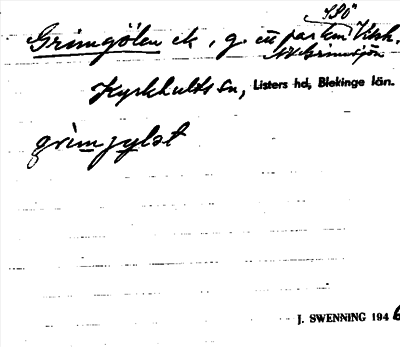 SSÖ
Grimgölen ek, g. en par km Vilsh.
NV Grimsjön
Kyrkhults sn, Listers hd, Blekinge län.
grìmjylət
J. SWENNING 1946